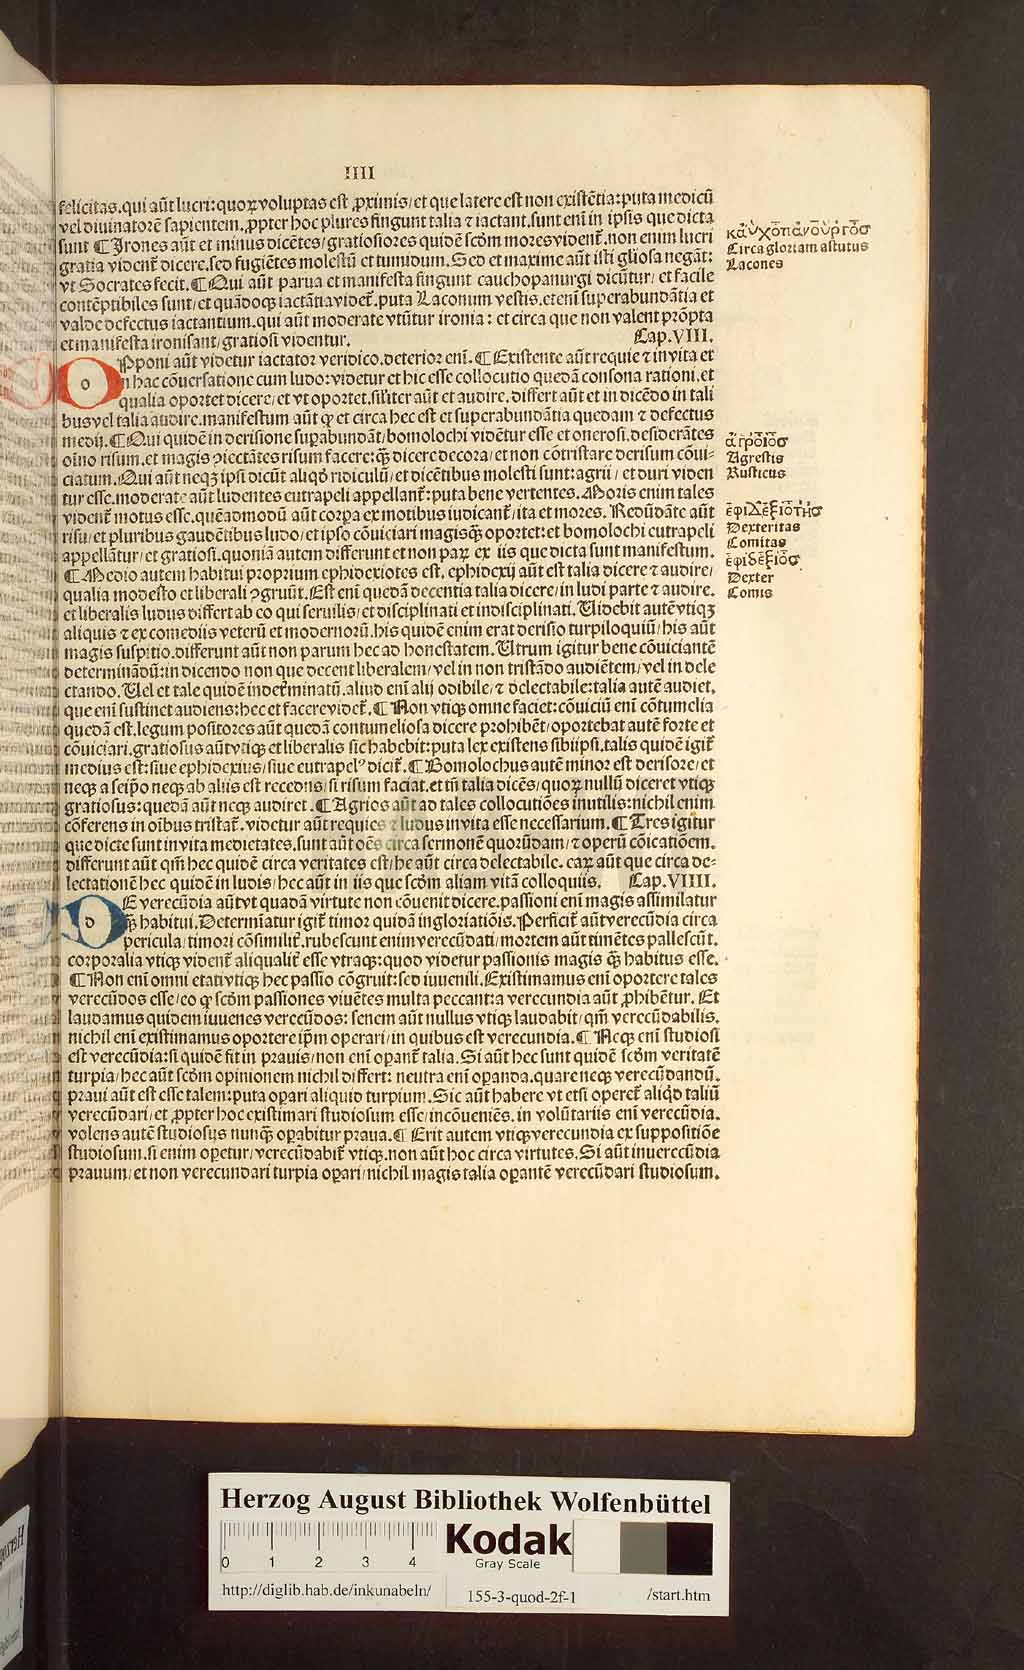 IIII
felicitas.qui aūt lucri:quoꝝ voluptas est ꝓximis/et que latere est non existētia:puta medicū
vel diuinatorē sapientem.ꝓpter hoc plures fingunt talia ⁊ iactant.sunt enī in ipsis que dicta
sunt ¶ Irones aūt et minus dicētes/gratiosiores quidē scḋm mores vident᷑.non enim lucri
gratia vident᷑ dicere.sed fugiētes molestū et tumidum. Sed et maxime aūt isti gliosa negāt:
vt Socrates fecit. ¶ Qui aūt parua et manifesta fingunt cauchopanurgi dicūtur/et facile
contēptibiles sunt/et quādoqꝫ iactātia videt᷑.puta Laconum vestis.etenī superabundātia et
valde defectus iactantium.qui aūt moderate vtūtur ironia: et circa que non valent prōpta
et manifesta ironisant/gratiosi videntur. Cap.VIII.
OPponi aūt videtur iactator veridico.deterior enī. ¶ Existente aūt requie ⁊ in vita et
in hac cōuersatione cum ludo:videtur et hic esse collocutio quedā consona rationi.et
qualia oportet dicere/et vt oportet.sil'iter aūt et audire.differt aūt et in dicēdo in tali
bus vel talia audire.manifestum aūt ꝙ et circa hec est et superabundātia quedam ⁊ defectus
medij. ¶ Qui quidē in derisione suꝑabundāt/bomolochi vidētur esse et onerosi.desiderātes
oīno risum.et magis ꝯiectātes risum facere:qꝫ̄ dicere decora/et non cōtristare derisum cōui-
ciatum.Qui aūt neqꝫ ipsi dicūt aliqḋ ridiculū/et dicētibus molesti sunt:agrii/et duri viden
tur esse.moderate aūt ludentes eutrapeli appellant᷑:puta bene vertentes. Moris enim tales
vident᷑ motus esse.quēadmodū aūt corꝑa ex motibus iudicant᷑/ita et mores. Redūdāte aūt
risu/et pluribus gaudētibus ludo/et ipso cōuiciari magisqꝫ̄ oportet:et bomolochi eutrapeli
appellātur/et gratiosi.quoniā autem differunt et non paꝝ ex iis que dicta sunt manifestum.
¶ Medio autem habitui proprium ephidexiotes est. ephidexij aūt est talia dicere ⁊ audire/
qualia modesto et liberali ꝯgruūt. Est enī quedā decentia talia dicere/in ludi parte ⁊ audire.
et liberalis ludus differt ab eo qui seruilis/et disciplinati et indisciplinati. Videbit autē vtiqꝫ
aliquis ⁊ ex comediis veterū et modernorū.his quidē enim erat derisio turpiloquiū/his aūt
magis suspitio.differunt aūt non parum hec ad honestatem. Utrum igitur bene cōuiciantē
determinādū:in dicendo non que decent liberalem/vel in non tristādo audiētem/vel in dele
ctando. Vel et tale quidē indet᷑minatū.aliud enī alij odibile/⁊ delectabile:talia autē audiet.
que enī sustinet audiens:hec et facere videt᷑. ¶ Non vtiqꝫ omne faciet:cōuiciū enī cōtumelia
quedā est.legum positores aūt quedā contumeliosa dicere prohibēt/oportebat autē forte et
cōuiciari.gratiosus aūt vtiqꝫ et liberalis sic habebit:puta lex existens sibiipsi.talis quidē igit᷑
medius est:siue ephidexius/siue eutrapelꝰ dicit᷑. ¶ Bomolochus autē minor est derisore/et
neqꝫ a seip̄o neqꝫ ab aliis est recedens/si risum faciat.et tn̄ talia dicēs/quoꝝ nullū diceret vtiqꝫ
gratiosus:quedā aūt neqꝫ audiret. ¶ Agrios aūt ad tales collocutiōes inutilis:nichil enim
cōferens in oībus tristat᷑. videtur aūt requies ⁊ ludus in vita esse necessarium. ¶ Tres igitur
que dicte sunt in vita medietates.sunt aūt oēs circa sermonē quorūdam/⁊ operū cōicatiōem.
differunt aūt qm̄ hec quidē circa veritates est/he aūt circa delectabile. eaꝝ aūt que circa de-
lectationē hec quidē in ludis/hec aūt in iis que scḋm aliam vitā colloquiis. Cap.VIIII.
DE verecūdia aūt vt quadā virtute non cōuenit dicere.passioni enī magis assimilatur
qꝫ̄ habitui. Determīatur igit᷑ timor quidā ingloriatiōis. Perficit᷑ aūt verecūdia circa
pericula/timori cōsimilit᷑.rubescunt enim verecūdati/mortem aūt timētes pallescūt.
corporalia vtiqꝫ vident᷑ aliqualit᷑ esse vtraqꝫ:quod videtur passionis magis qꝫ̄ habitus esse.
¶ Non enī omni etati vtiqꝫ hec passio cōgruit:sed iuuenili. Existimamus enī oportere tales
verecūdos esse/eo ꝙ scḋm passiones viuētes multa peccant:a verecundia aūt ꝓhibētur. Et
laudamus quidem iuuenes verecūdos: senem aūt nullus vtiqꝫ laudabit/qm̄ verecūdabilis.
nichil enī existimamus oportere ip̄m operari/in quibus est verecundia. ¶ Neqꝫ enī studiosi
est verecūdia:si quidē fit in prauis/non enī oꝑant᷑ talia. Si aūt hec sunt quidē scḋm veritatē
turpia/hec aūt scḋm opinionem nichil differt: neutra enī oꝑanda.quare neqꝫ verecūdandū.
praui aūt est esse talem:puta oꝑari aliquid turpium. Sic aūt habere vt etsi operet᷑ aliqḋ taliū
verecūdari/et ꝓpter hoc existimari studiosum esse/incōueniēs. in volūtariis enī verecūdia.
volens autē studiosus nunqꝫ̄ oꝑabitur praua. ¶ Erit autem vtiqꝫ verecundia ex suppositiōe
studiosum.si enim oꝑetur/verecūdabit᷑ vtiqꝫ.non aūt hoc circa virtutes. Si aūt inuerecūdia
prauum/et non verecundari turpia oꝑari/nichil magis talia oꝑantē verecūdari studiosum.
καὐχὸπάνὂυργὄσ
Circa gloriam astutus
Lacones
ἀγρὄιὄσ
Agrestis
Rusticus
ἐφιδἐξιὄτήσ
Dexteritas
Comitas
ἐφιδἐξιὄσ
Dexter
Comis
Herzog August Bibliothek Wolfenbüttel
0 1 2 3 4
Kodak
Gray Scale
http://diglib.hab.de/inkunabeln/ 155-3-quod-2f-1 /start.htm